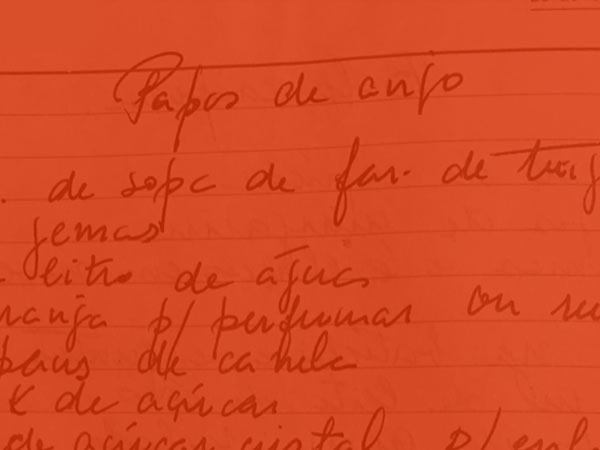 Papos de anjo
. de sopa de far. de trig
gemas
litro de água
ranja p/ perfumar ou
paus de canela
K de açúcar
de açúcar cristal p/